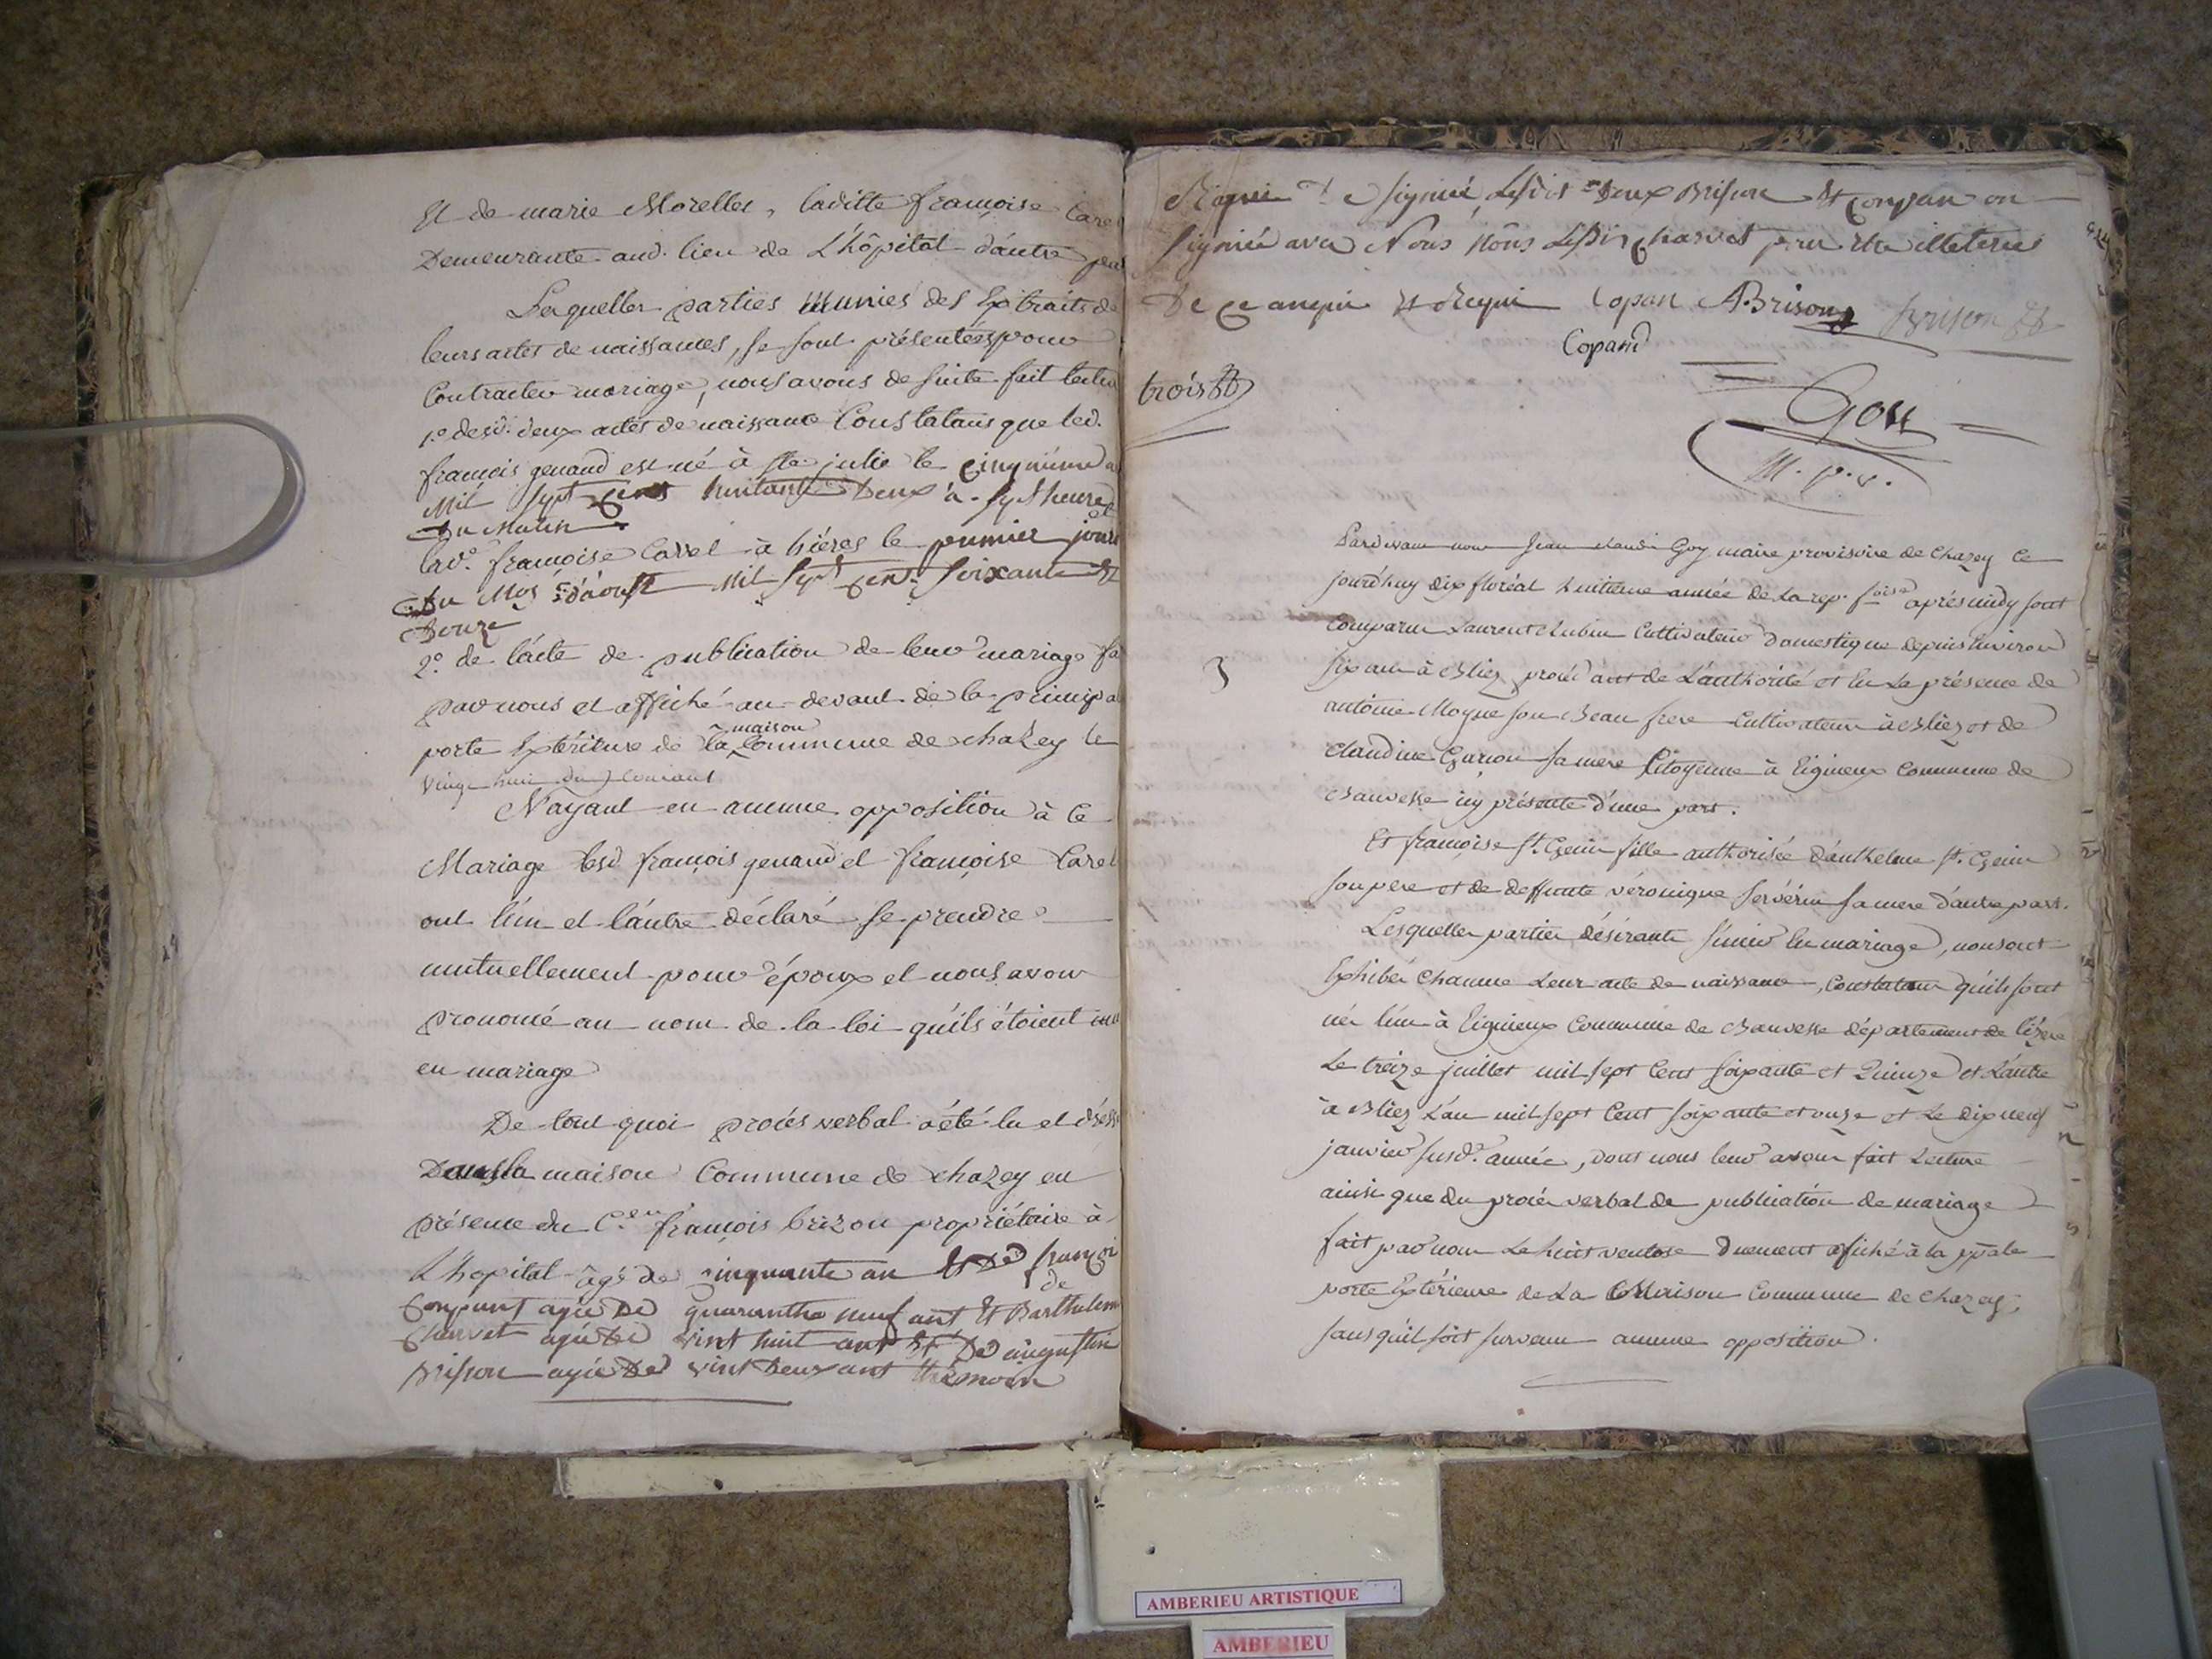 Et de marie Morelles, laditte françoise Carel
Demeurante aud. lieu de L'hôpital d'autre
Lesquelles parties Munies des Extraits de
leurs actes de naissances, se sont présentées pour
Contracter mariage, nous avons de suite fait
1.º desd. deux actes de naissance Constatans que led.
françois genand est né à Ste julie le Cinquième
Mil sept cents huitante Deux à sept heure
Du Matin et
lad.e françoise Carel à hières le premier jour
Du Mois d'aoust Mil sept cent soixante et
Douze
2.º de l'acte de publication de leur mariage
par nous et affiché au devant de la
porte Extérieure de la maison Commune de chazey le
vingt huit du Courant
N'ayant eu aucune opposition à Ce
Mariage lesd françois genand et françoise Carel
ont l'un et l'autre déclaré se prendre
mutuellement pour époux et nous avons
prononcé au nom de la loi qu'ils étoient
en mariage
De tout quoi procés verbal a été lu et
Dans la maison Commune de chazey en
présence du C.en françois brizon propriétaire à
L'hopital âgé de cinquante an Et De françoi
agée De quaranthe neuf ant Et de Barthelem
Charvet agée De vint huit ant Et De augustin
Brisson agée De vint Deux ant
signié Lesdit Deux Brison Et on
signié avec Nous Nons Ledit Charvet pour etre illeterée
De Ce anquis Et Requi Copan ABrison Brison
Copand
trois
Goy
M. p. v.
Pardevant nous Jean claude Goy maire provisoire de Chazey Ce
jourd'huy dix floréal huitieme année de La rep. f.oise après midy sont
Comparu Laurent Lubin Cultivateur Domestique depuis Environ
six ans à Bliez procédant de L'authorité et En La présence de
antoine Moyne son Beau frere Cultivateur à Bliez et de
Claudine sa mere Citoyenne à Eignieux Commune de
présente d'une part.
3
Et françoise St. Genin fille authorisée d'anthelme St. Genin
son pere et de deffunte véronique sa mere d'autre part.
Lesquelles parties désirants s'unir En mariage, nous ont
Exhibés Chacune Leur acte de naissance, Constatans qu'ils sont
nés l'un à Eignieux Commune de département de l'izere
Le treize juillet mil sept Cent soixante et Quinze et L'autre
à Bliez L'an mil sept Cent soixante et onze et Le dix neuf
janvier susd.e année, dont nous leur avons fait Lecture
ainsi que du procés verbal de publication de mariage
fait par nous Le huit ventose duement afiché à la ppale
porte Extérieure de La Maison Commune de Chazey,
sans qu'il soit survenu aucune opposition.
AMBERIEU ARTISTIQUE
AMBERIEU